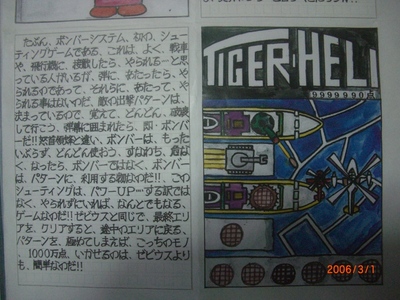 たぶん、ボンバーシステム、初の、シュー
ティングゲームである、これは、よく、戦車
や、飛行機に、接触したら、やられるーと思
っている人がいるが、弾に、あたったら、やら
れるのであって、それらに、あたって、やら
れる事はないのだ、敵の出撃パターンは、
決まっているので、覚えて、どんどん、破壊
して行こう、弾幕に囲まれたら、即・ボンバ
ーだ!!怒首領蜂と違い、ボンバーは、もった
いぶらず、どんどん使おう、すなわち、危な
く、なったら、ボンバーではなく、ボンバー
は、パターンに、利用する物なのだ!!、この
シューティングは、パワーUP…する訳では
なく、やられずにいれば、なんとでもなる、
ゲームなのだ!!ゼビウスと同じで、最終エリ
アを、クリアすると、途中のエリアに戻る、
パターンを、極めてしまえば、こっちのモノ、
1000万点、いかせるのは、ゼビウスより
も、簡単なのだ!!
TIGER-HELI
9999990点
2006/3/1